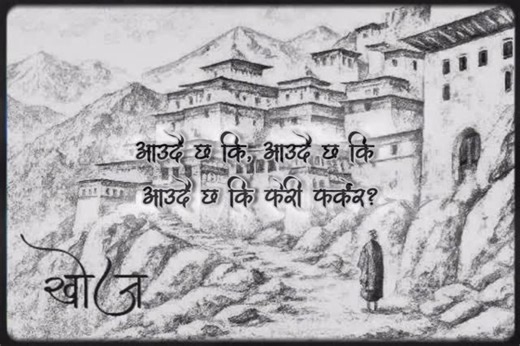 आउदै छ कि, आउदै छ कि
आउदै छ कि फेरी फर्केर?
खोज